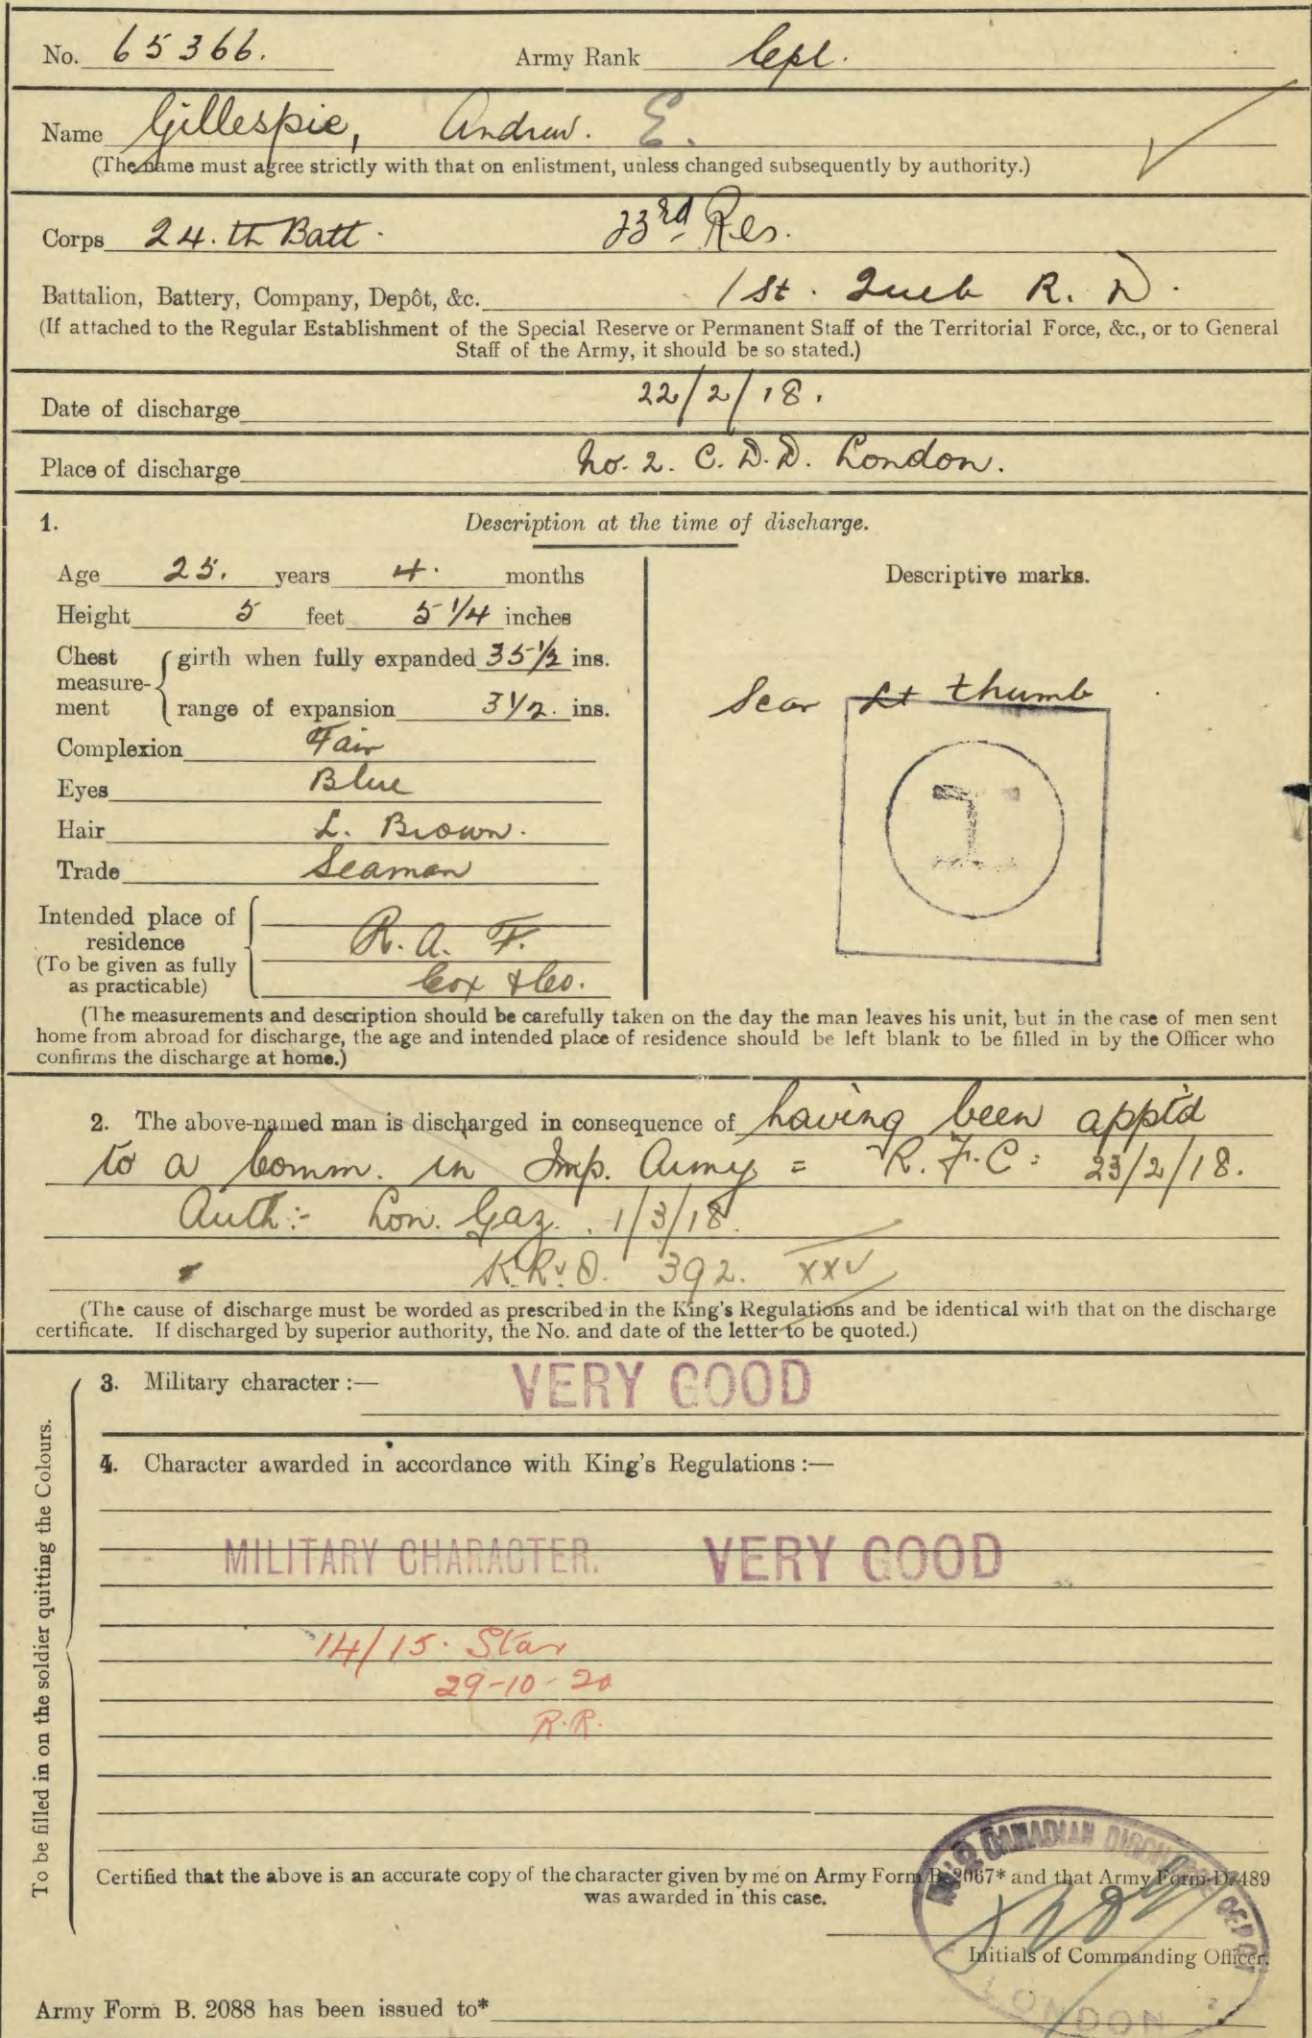 No. 65366. Army Rank Cpl.
Name Gillespie, Andrew. E.
(The name must agree strictly with that on enlistment, unless changed subsequently by authority.)
Corps 24.th Batt. 23rd Res.
Battalion, Battery, Company, Depôt, &c. 1st. Queb R. D.
(If attached to the Regular Establishment of the Special Reserve or Permanent Staff of the Territorial Force, &c., or to General
Staff of the Army, it should be so stated.)
Date of discharge 22/2/18.
Place of discharge No. 2. C. D. D. London.
1. Description at the time of discharge.
Age 25. years 4. months
Height 5 feet 5 1/4 inches
Chest measurement girth when fully expanded 35 1/2 ins.
range of expansion 3 1/2. ins.
Complexion Fair
Eyes Blue
Hair L. Brown.
Trade Seaman
Intended place of
residence
(To be given as fully
as practicable)
R. A. F.
Cox & Co.
Descriptive marks.
Scar Lt thumb
(The measurements and description should be carefully taken on the day the man leaves his unit, but in the case of men sent
home from abroad for discharge, the age and intended place of residence should be left blank to be filled in by the Officer who
confirms the discharge at home.)
2. The above-named man is discharged in consequence of having been appt'd
to a Comm. in Imp. Army = R. F. C: 23/2/18.
Auth:- Lon. Gaz. 1/3/18.
K.R.&O. 392. XXV
(The cause of discharge must be worded as prescribed in the King's Regulations and be identical with that on the discharge
certificate. If discharged by superior authority, the No. and date of the letter to be quoted.)
To be filled in on the soldier quitting the Colours.
3. Military character :— VERY GOOD
4. Character awarded in accordance with King's Regulations :—
MILITARY CHARACTER. VERY GOOD
14/15. Star
29-10-20
R.R.
Certified that the above is an accurate copy of the character given by me on Army Form B. 2067* and that Army Form D. 489
was awarded in this case.
No 2 CANADIAN DISCHARGE DEPOT
LONDON
Initials of Commanding Officer.
Army Form B. 2088 has been issued to*